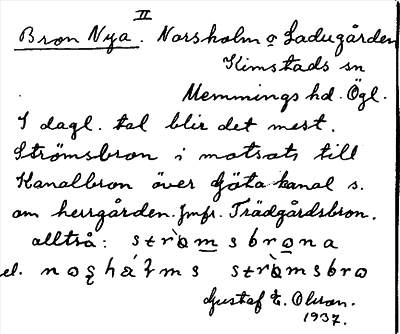 II
Bron Nya. Norsholm o Ladugården
Kimstads sn
Memmings hd. Ögl.
I dagl. tal blir det mest.
Strömsbron i motsats till
Kanalbron över Göta kanal s.
om herrgården. Jmfr. Trädgårdsbron.
alltså: strömsbrona
el. strömsbro
Gustaf E. Olsson.
1937.